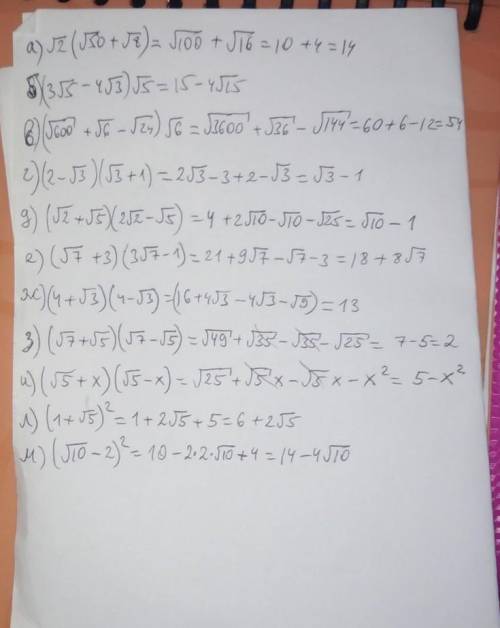 а) √2 (√50 + √8) = √100 + √16 = 10 + 4 = 14
б) (3√5 − 4√3) √5 = 15 − 4√15
в) (√600 + √6 − √24) √6 = √3600 + √36 − √144 = 60 + 6 − 12 = 54
г) (2 − √3) (√3 + 1) = 2√3 − 3 + 2 − √3 = √3 − 1
д) (√2 + √5) (2√2 − √5) = 4 + 2√10 − √10 − √25 = √10 − 1
е) (√7 + 3) (3√7 − 1) = 21 + 9√7 − √7 − 3 = 18 + 8√7
ж) (4 + √3) (4 − √3) = (16 + 4√3 − 4√3 − √9) = 13
з) (√7 + √5) (√7 − √5) = √49 + √35 − √35 − √25 = 7 − 5 = 2
и) (√5 + x) (√5 − x) = √25 + √5 x − √5 x − x² = 5 − x²
л) (1 + √5)² = 1 + 2√5 + 5 = 6 + 2√5
м) (√10 − 2)² = 10 − 2·2·√10 + 4 = 14 − 4√10